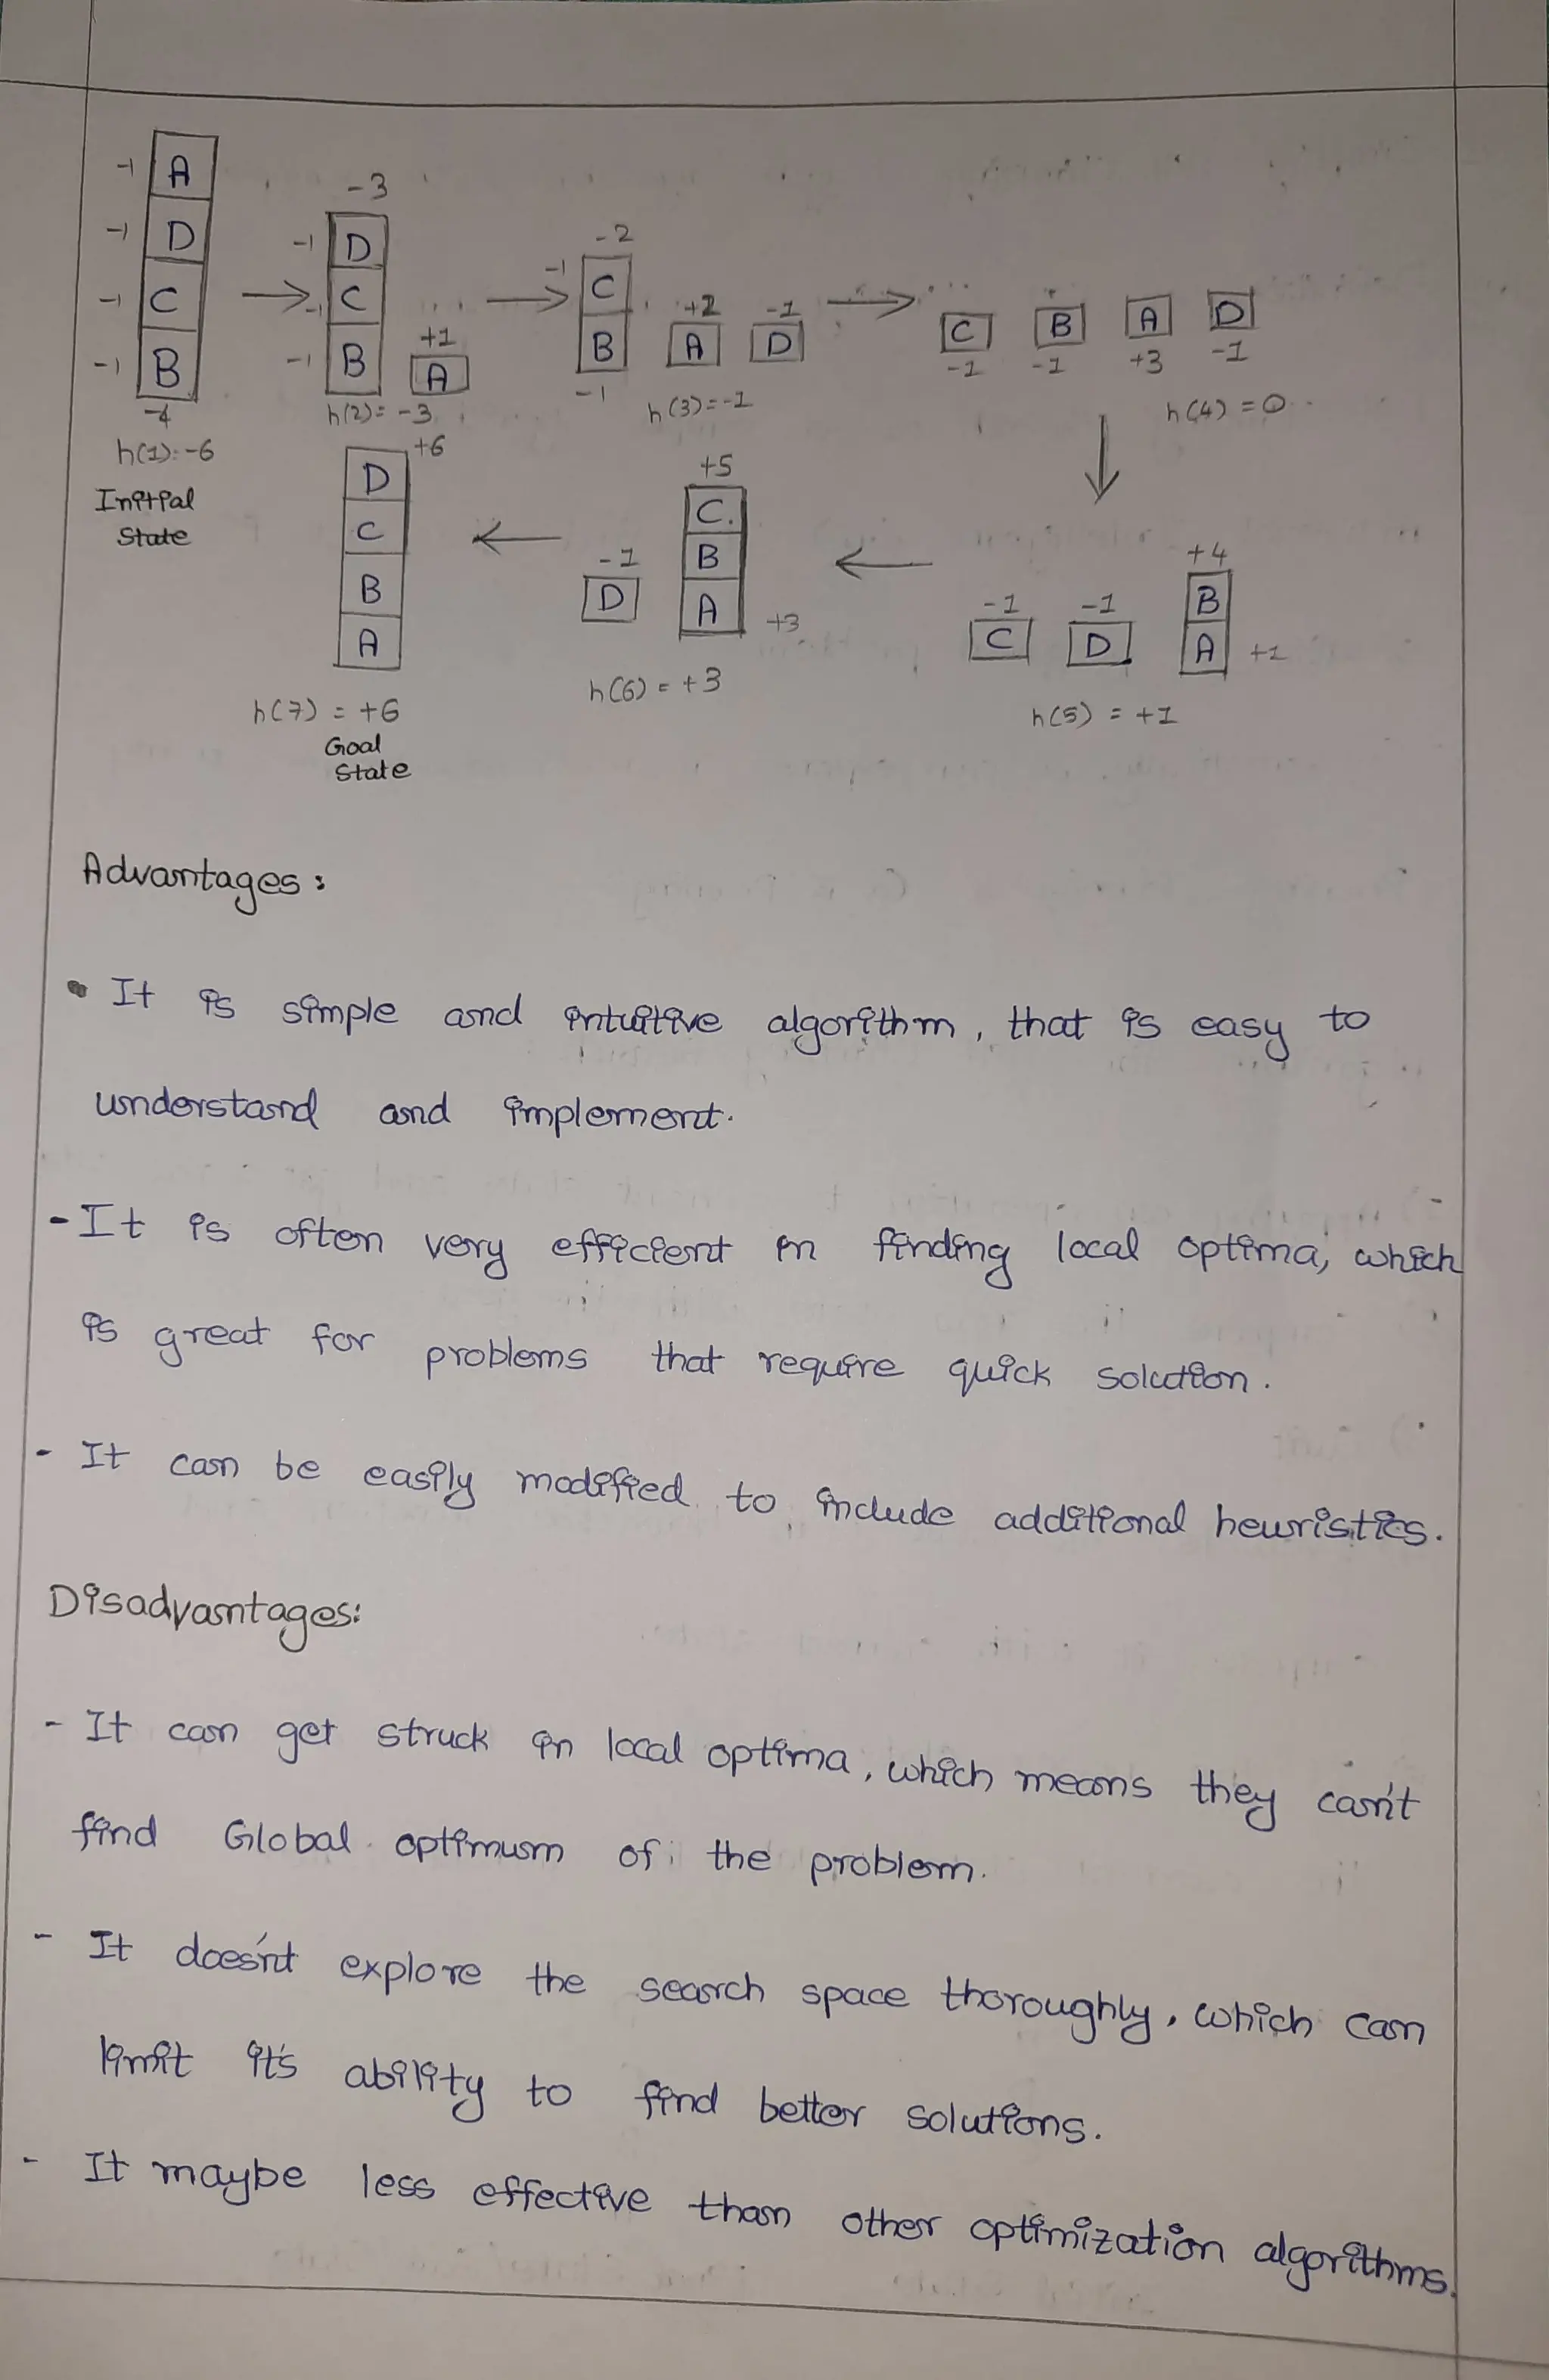 A
-1
D
-1
C
-1
B
-1
-4
h(1):-6
Initial
State
-3
D
-1
C
-1
B
-1
+1
A
h(2)= -3
-2
-1
C
B
-1
+2
A
-1
D
h(3)=-1
C
-1
B
-1
A
+3
D
-1
h(4) = 0
+6
D
C
B
A
h(7) = +6
Goal
State
-1
D
+5
C
B
A
+3
h(6) = +3
-1
C
-1
D
+4
B
A
+1
h(5) = +1
Advantages:
• It is simple and intuitive algorithm, that is easy to
understand and implement.
- It is often very efficient in finding local optima, which
is great for problems that require quick solution.
- It can be easily modified to include additional heuristics.
Disadvantages:
- It can get struck in local optima, which means they can't
find Global optimum of the problem.
- It does'nt explore the search space thoroughly, which can
limit it's ability to find better solutions.
- It maybe less effective than other optimization algorithms.